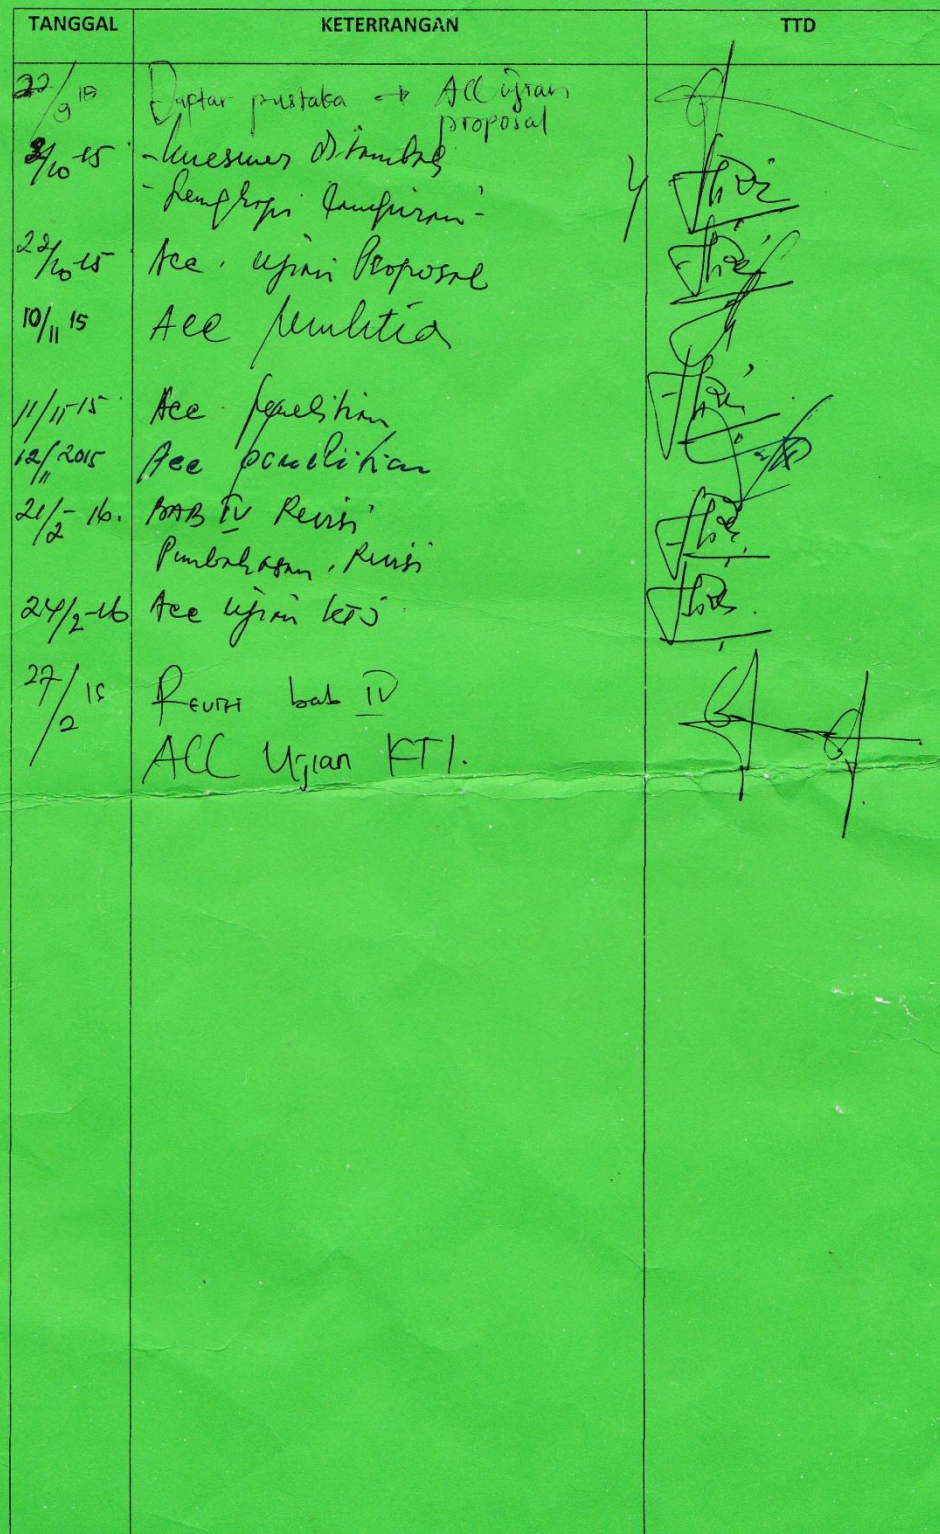 TANGGAL KETERRANGAN TTD
22/9 15 Daftar pustaka → ACC ujian
proposal
/10-15 - kuesioner ditambah
- lengkapi lampiran -
22/10-15 Acc. ujian Proposal
10/11 15 Acc
11/11-15 Acc penelitian
12/11 2015 Acc penelitian
21/2-16. BAB IV Revisi
Pembahasan, Revisi
24/2-16 Acc ujian KTI
27/2 Revisi bab IV
ACC Ujian KTI.